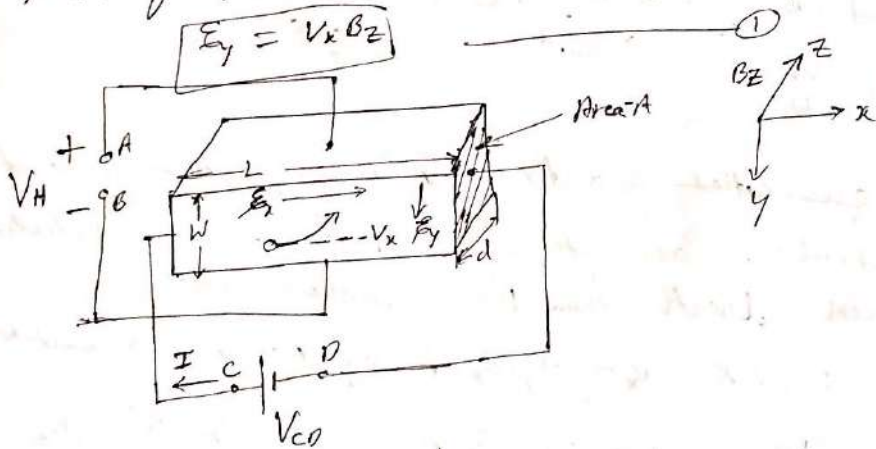 Ey = Vx Bz
1
Bz
Z
x
y
Area-A
+
A
VH
-
B
L
Ex
Ey
W
Vx
d
I
C
D
VCD